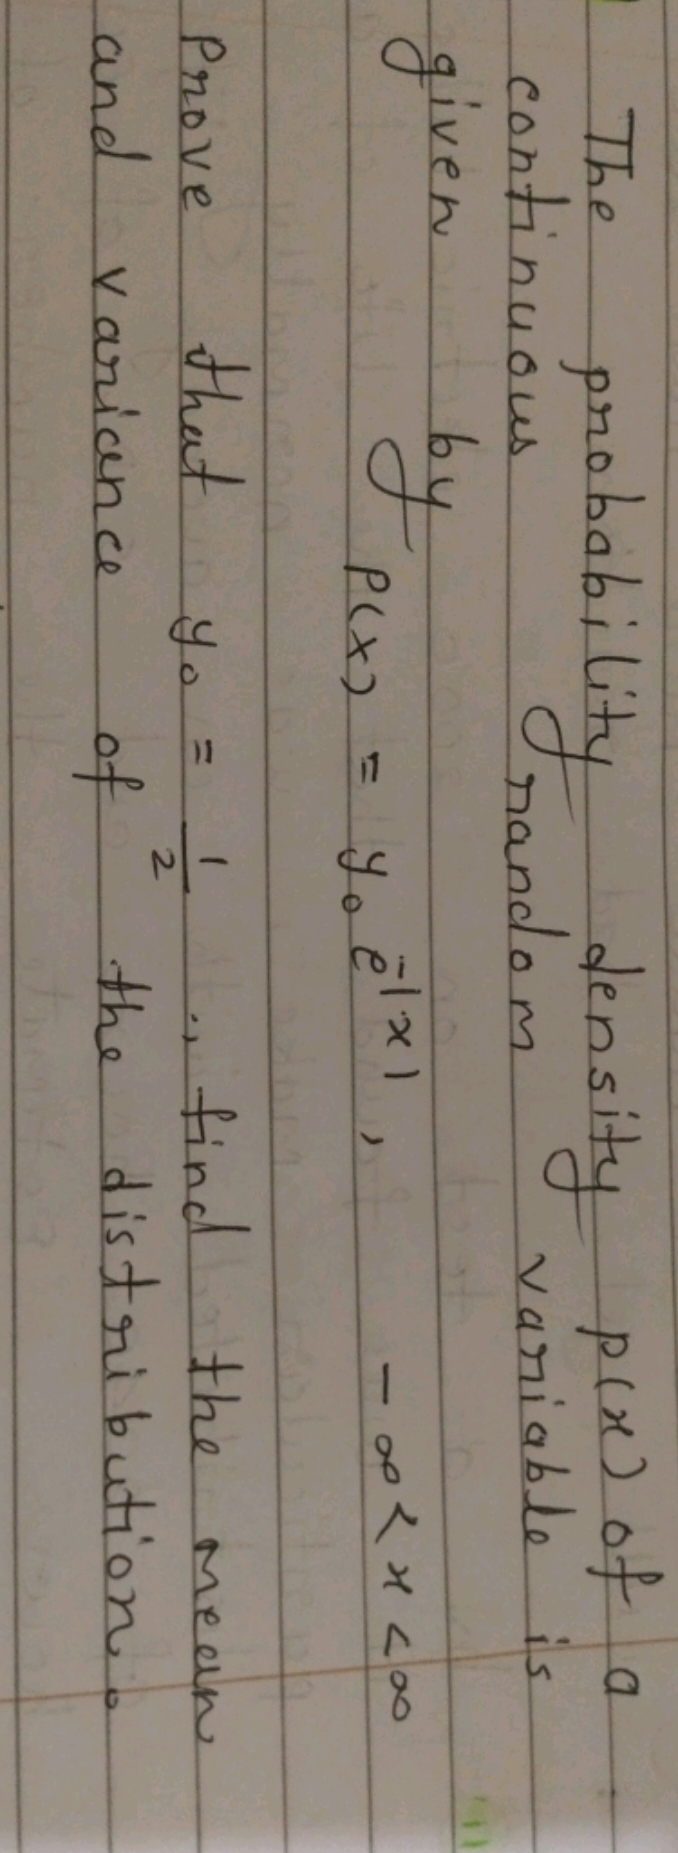 The probability density p(x) of a
continuous random variable is
given by
p(x) = y₀ e^-|x| , -∞ < x < ∞
Prove that y₀ = 1/2 ., find the mean
and variance of the distribution.